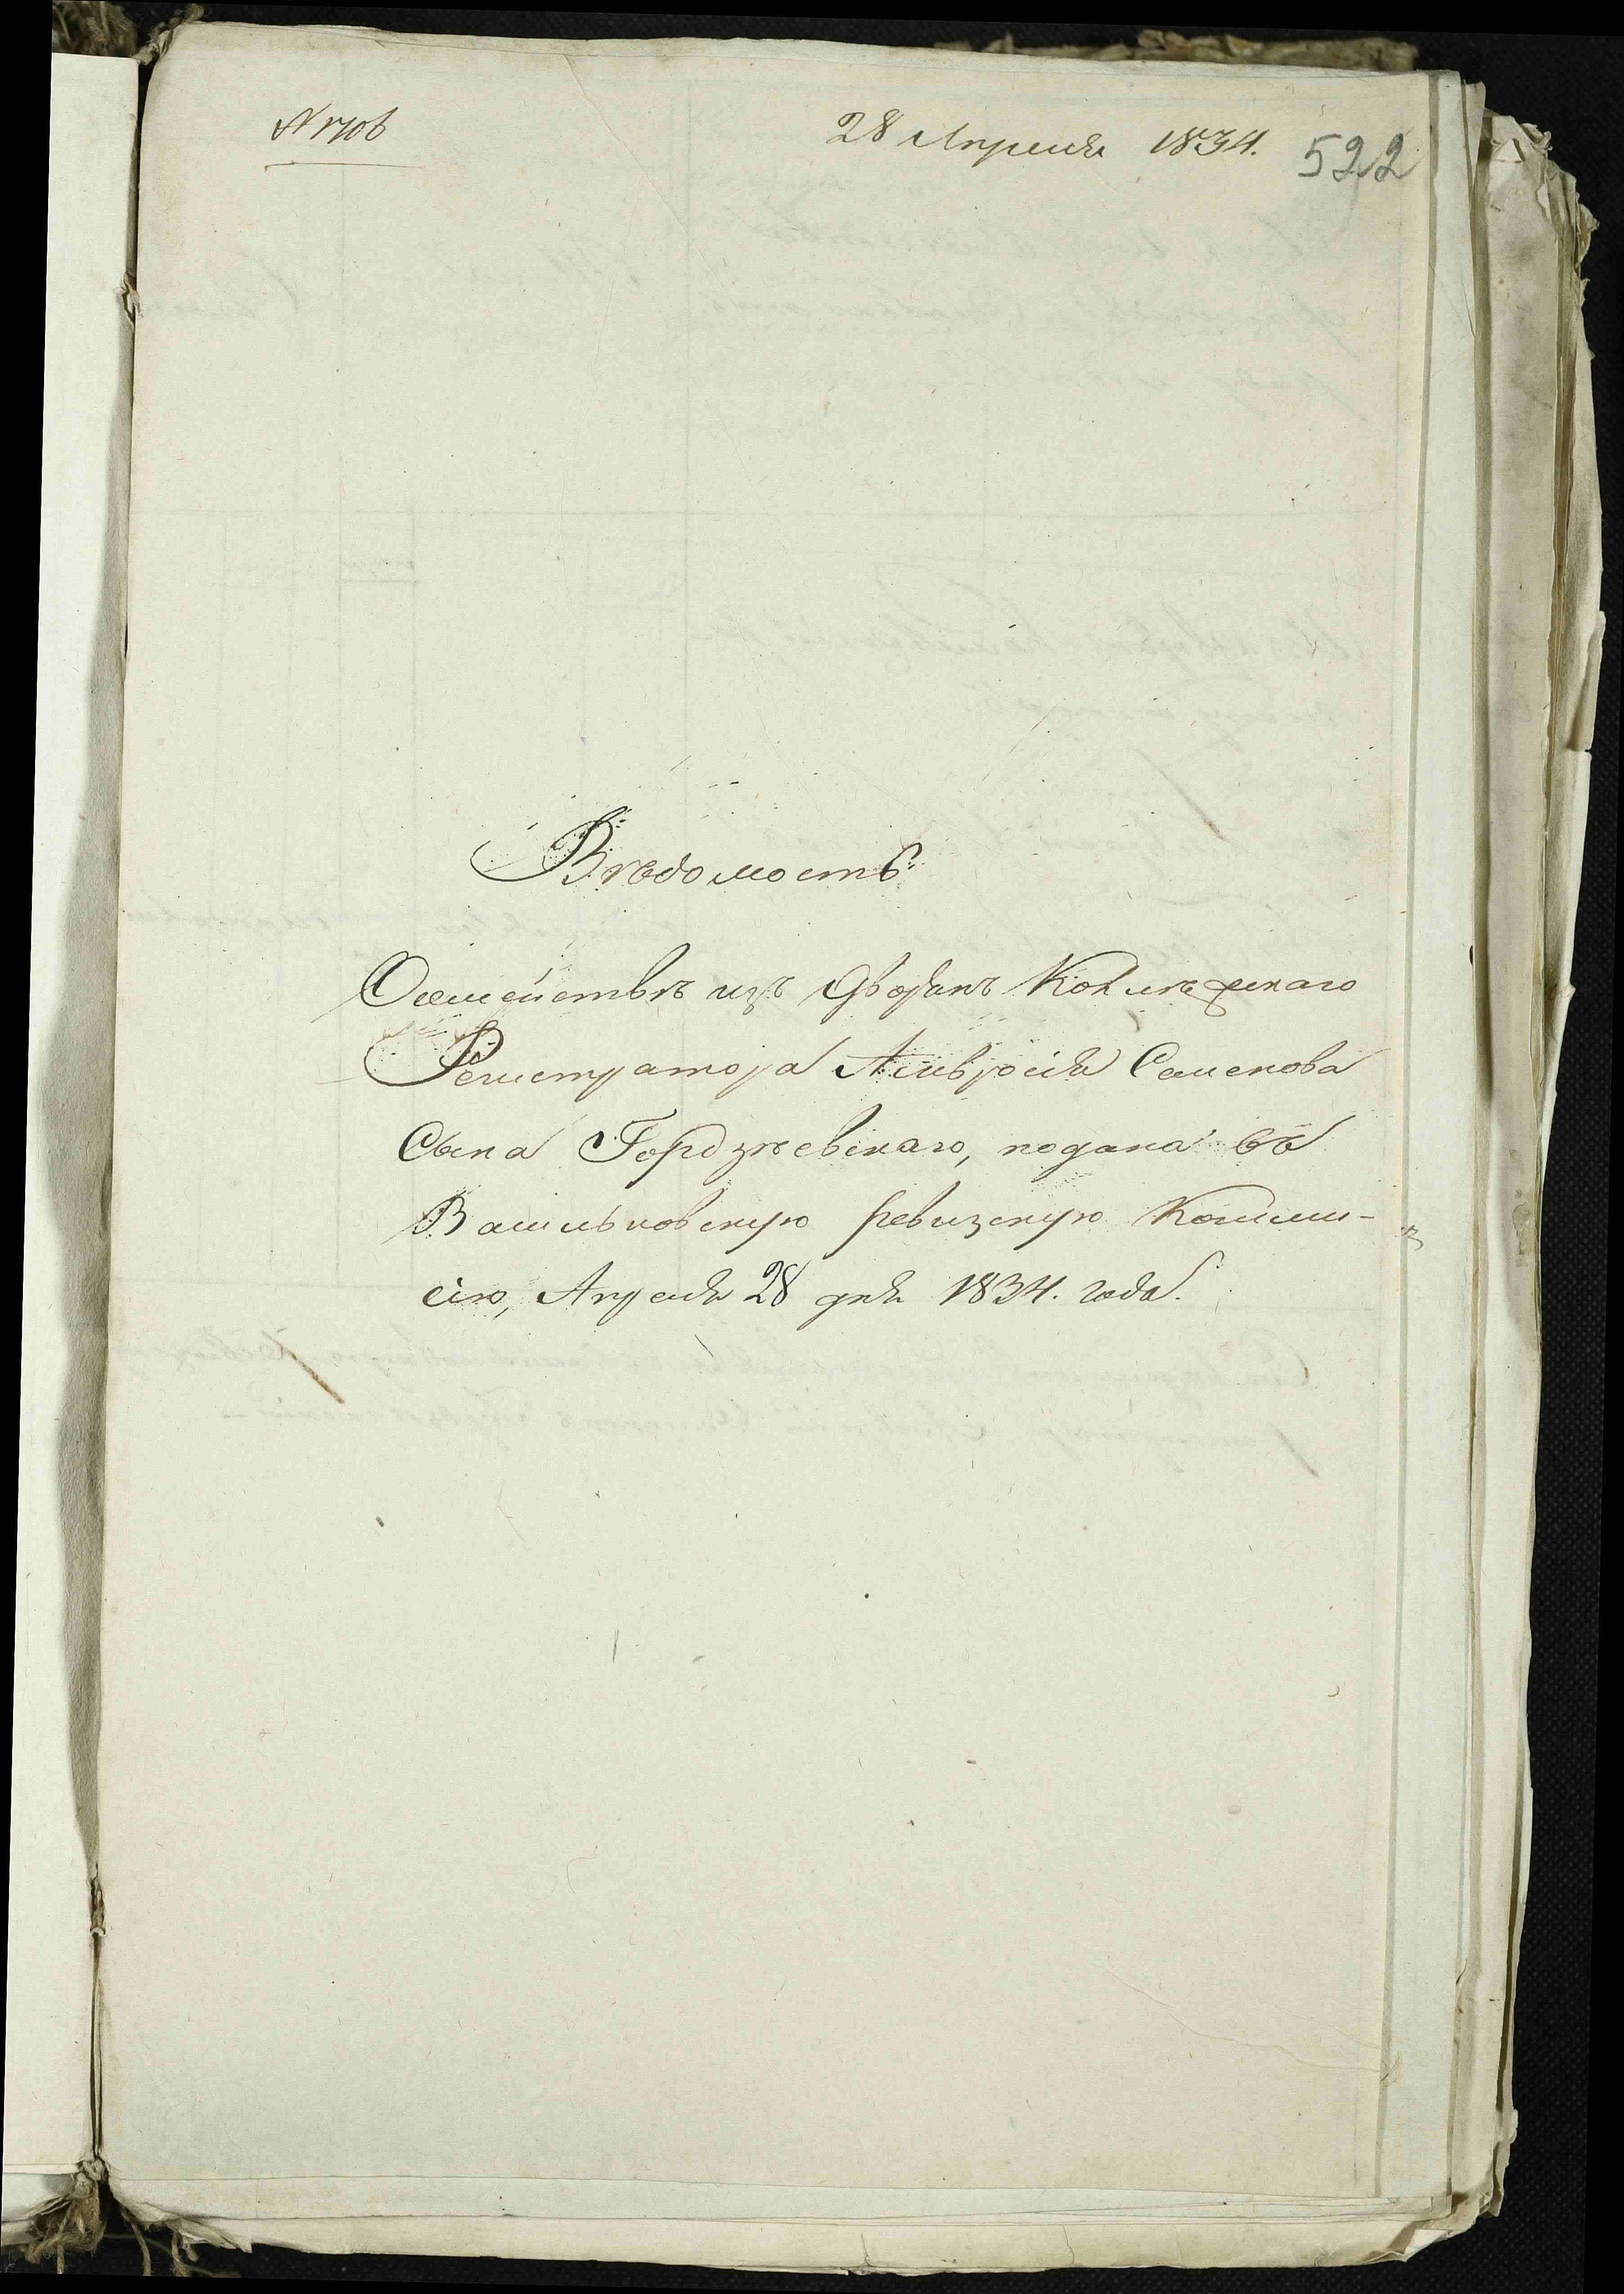 N 1706
28 Апреля 1834.
522
Вѣдомость
О семействѣ изъ дворянъ Коллежскаго
Регистратора Амвросія Семенова
Сына Гордзѣевскаго, подана въ
Васильковскую ревизскую Коммис-
сію, Апреля 28 дня 1834. года.